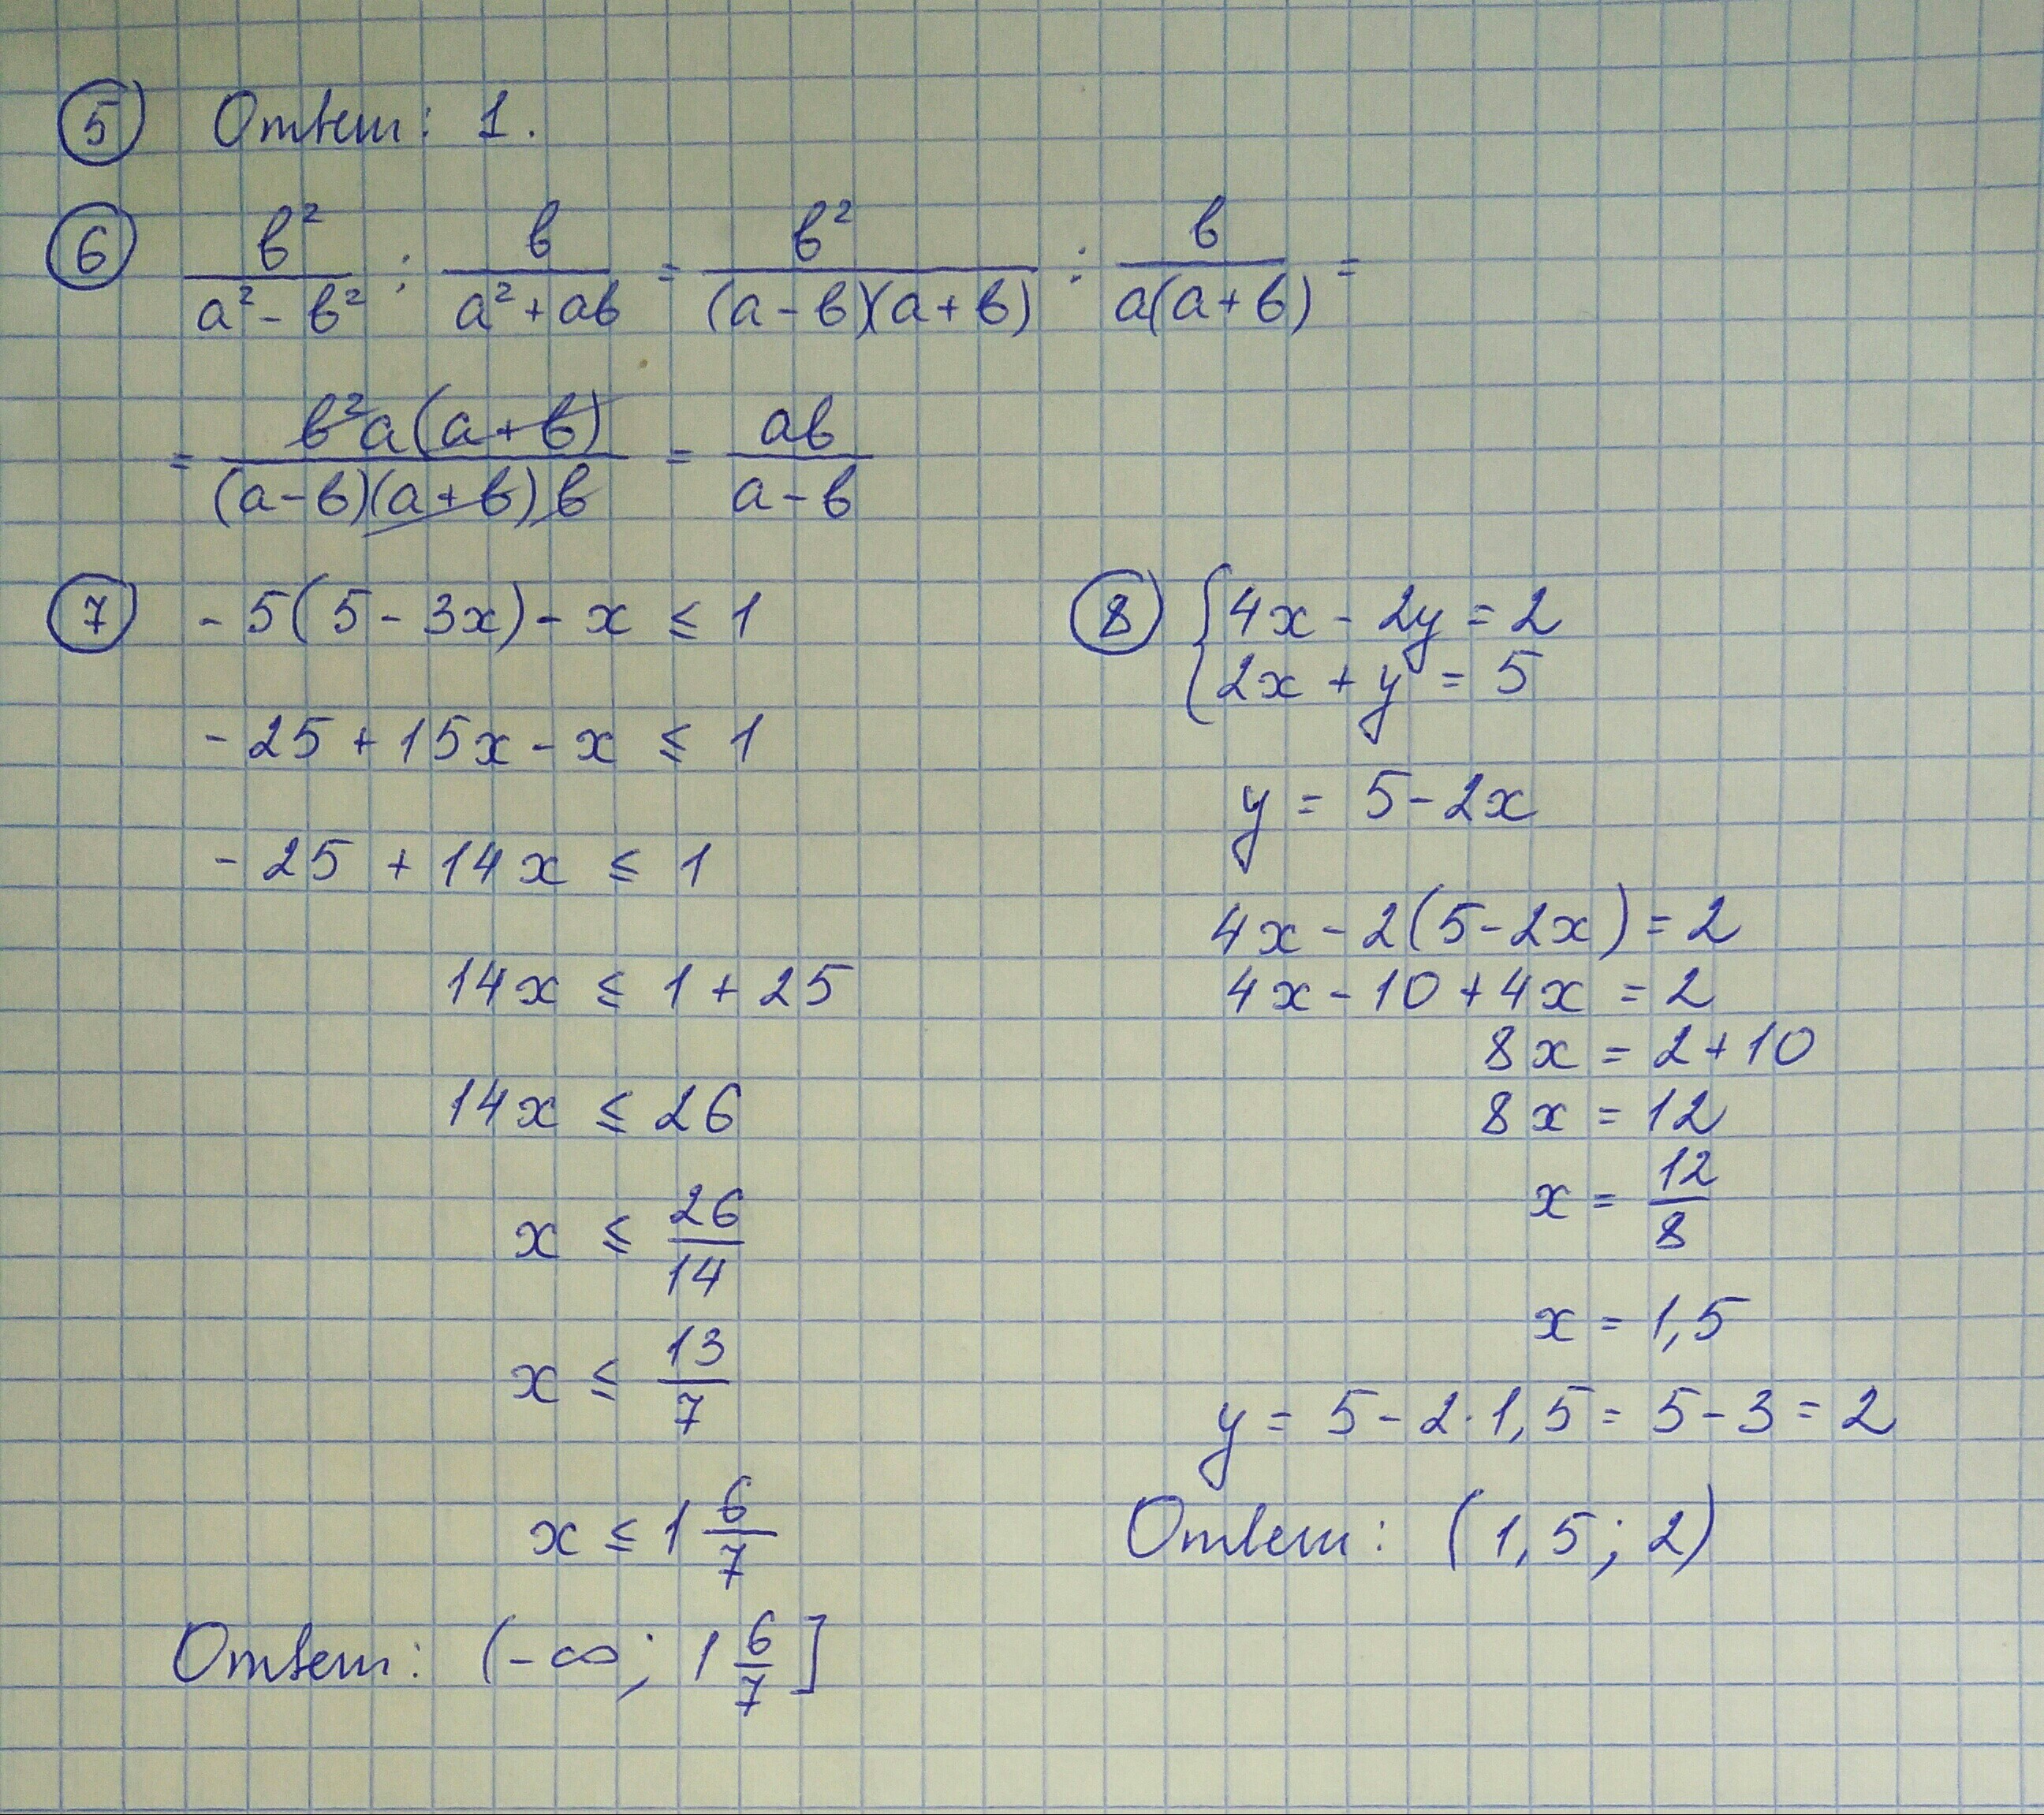 5 Ответ: 1.
6 b²/(a² - b²) : b/(a² + ab) = b²/((a - b)(a + b)) : b/(a(a + b)) =
= b²a(a + b)/((a - b)(a + b)b) = ab/(a - b)
7 - 5(5 - 3x) - x ≤ 1
- 25 + 15x - x ≤ 1
- 25 + 14x ≤ 1
14x ≤ 1 + 25
14x ≤ 26
x ≤ 26/14
x ≤ 13/7
x ≤ 1 6/7
Ответ: (-∞; 1 6/7]
8 { 4x - 2y = 2
2x + y = 5
y = 5 - 2x
4x - 2(5 - 2x) = 2
4x - 10 + 4x = 2
8x = 2 + 10
8x = 12
x = 12/8
x = 1,5
y = 5 - 2·1,5 = 5 - 3 = 2
Ответ: (1,5; 2)